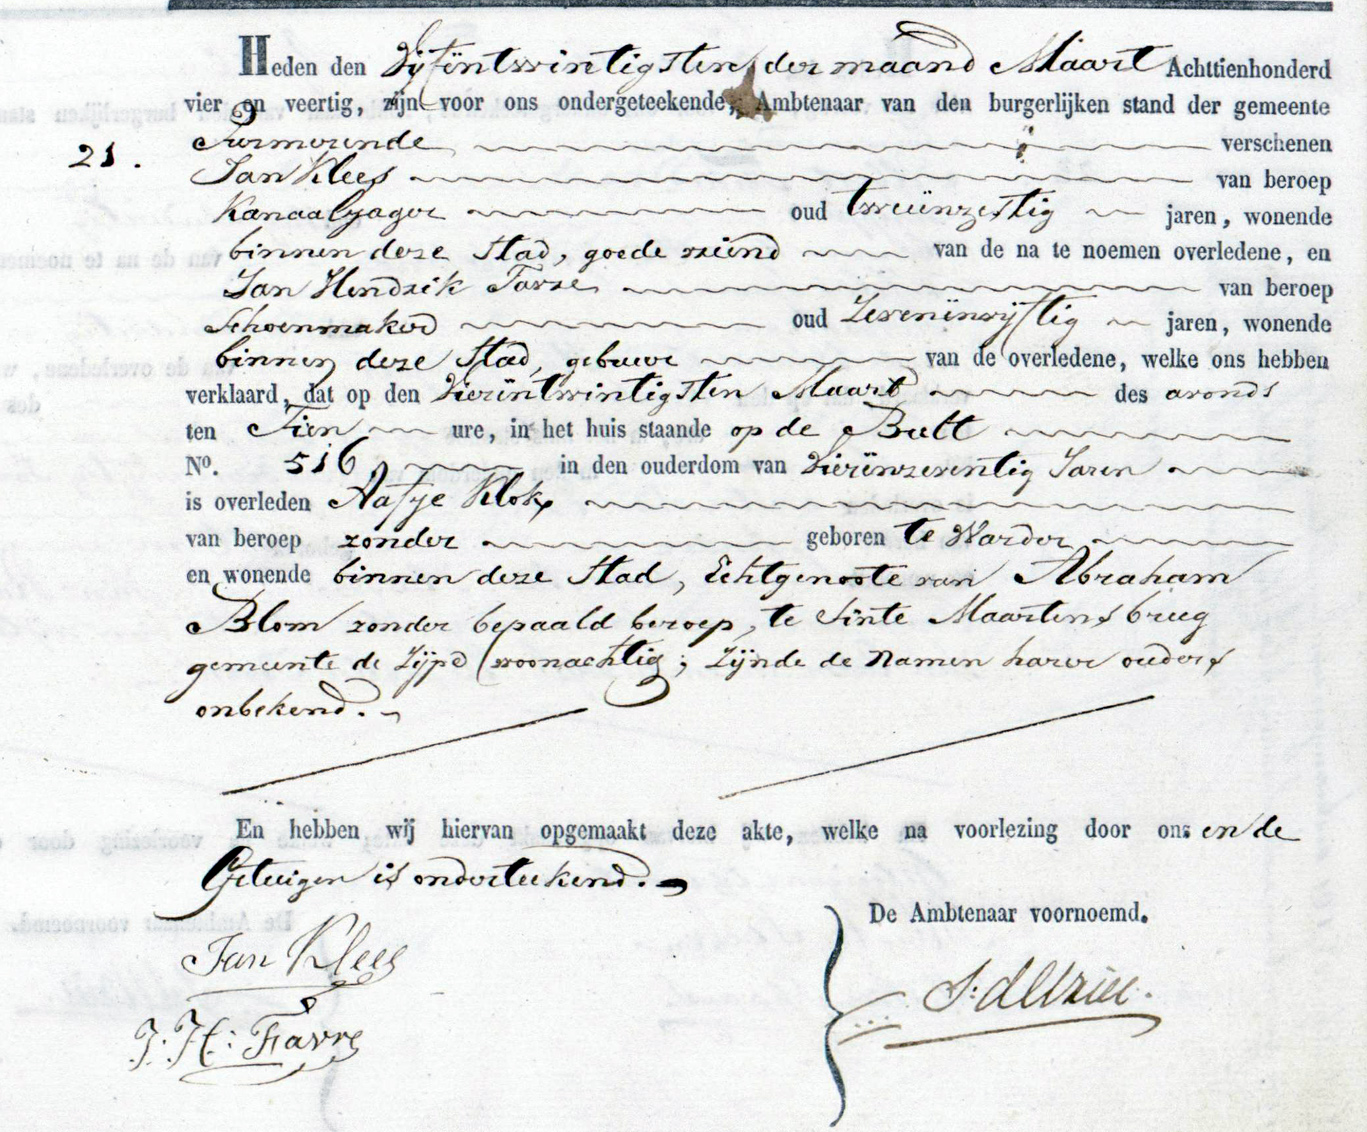 Heden den Vyfëntwintigsten der maand Maart Achttienhonderd
vier en veertig, zijn voor ons ondergeteekende, Ambtenaar van den burgerlijken stand der gemeente
21. Purmerende verschenen
Jan Klees van beroep
Kanaaljager oud tweeënzestig jaren, wonende
binnen deze Stad, goede vriend van de na te noemen overledene, en
Jan Hendrik Favre van beroep
Schoenmaker oud Zevenënvyftig jaren, wonende
binnen deze Stad, gebuere van de overledene, welke ons hebben
verklaard, dat op den Vierëntwintigsten Maart des avonds
ten Tien ure, in het huis staande op de Bult
No. 516, in den ouderdom van Vierënzeventig Jaren
is overleden Aafje Klok,
van beroep zonder geboren te Warder
en wonende binnen deze Stad, Echtgenoote van Abraham
Blom zonder bepaald beroep, te Sinte Maartensbrug
gemeente de Zijpe woonachtig; Zijnde de Namen harer ouders
onbekend.
En hebben wij hiervan opgemaakt deze akte, welke na voorlezing door ons en de
Getuigen is onderteekend.
De Ambtenaar voornoemd.
Jan Klees
J. H: Favre